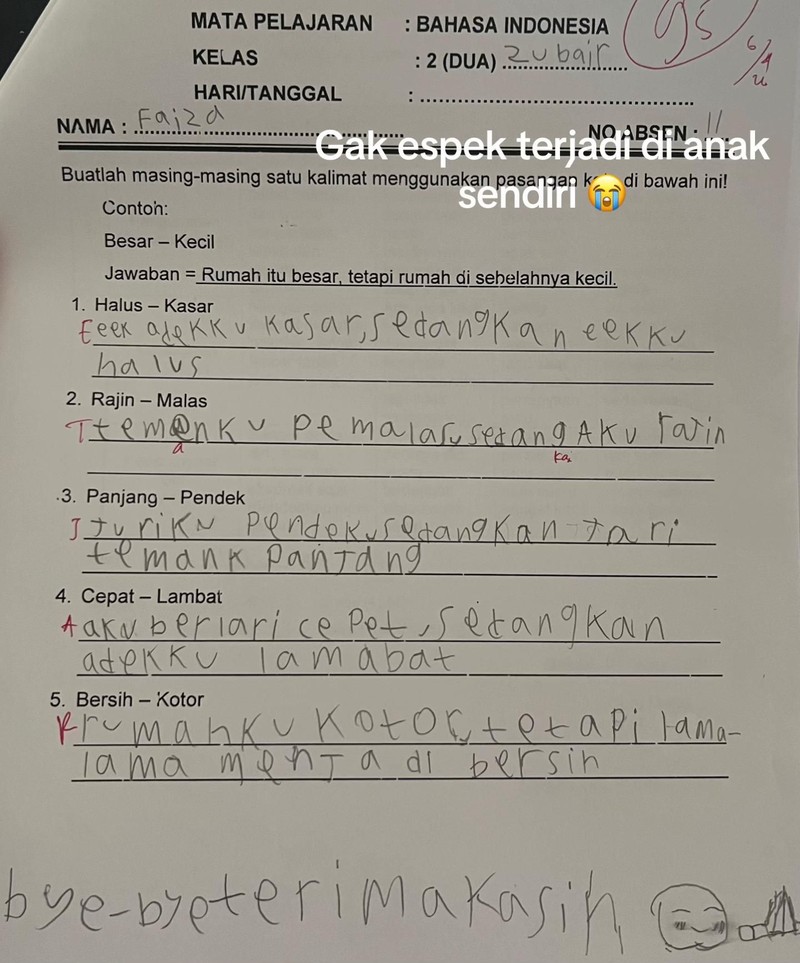 MATA PELAJARAN : BAHASA INDONESIA
95
KELAS : 2 (DUA) Zubair
HARI/TANGGAL :
NAMA : Faiza NO.ABSEN : 11
Gak espek terjadi di anak
sendiri 😭
Buatlah masing-masing satu kalimat menggunakan pasangan di bawah ini!
Contoh:
Besar – Kecil
Jawaban = Rumah itu besar, tetapi rumah di sebelahnya kecil.
1. Halus – Kasar
Eeek adekku kasar, sedangkan eekku
halus
2. Rajin – Malas
T temanku pemalas, sedang Aku rajin
a ka
3. Panjang – Pendek
J juriku pendek, sedangkan jari
temank panjang
4. Cepat – Lambat
A aku berlari cepet, sedangkan
adekku lamabat
5. Bersih – Kotor
R rumahku kotor, tetapi lama-
lama menjadi bersih
bye-bye terimakasih